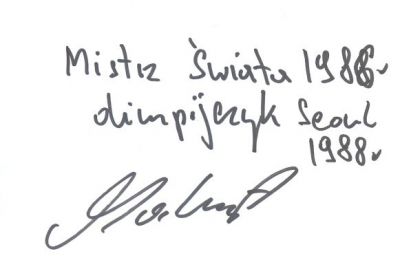 Mistrz Świata 1986r
olimpijczyk Seoul
1988r